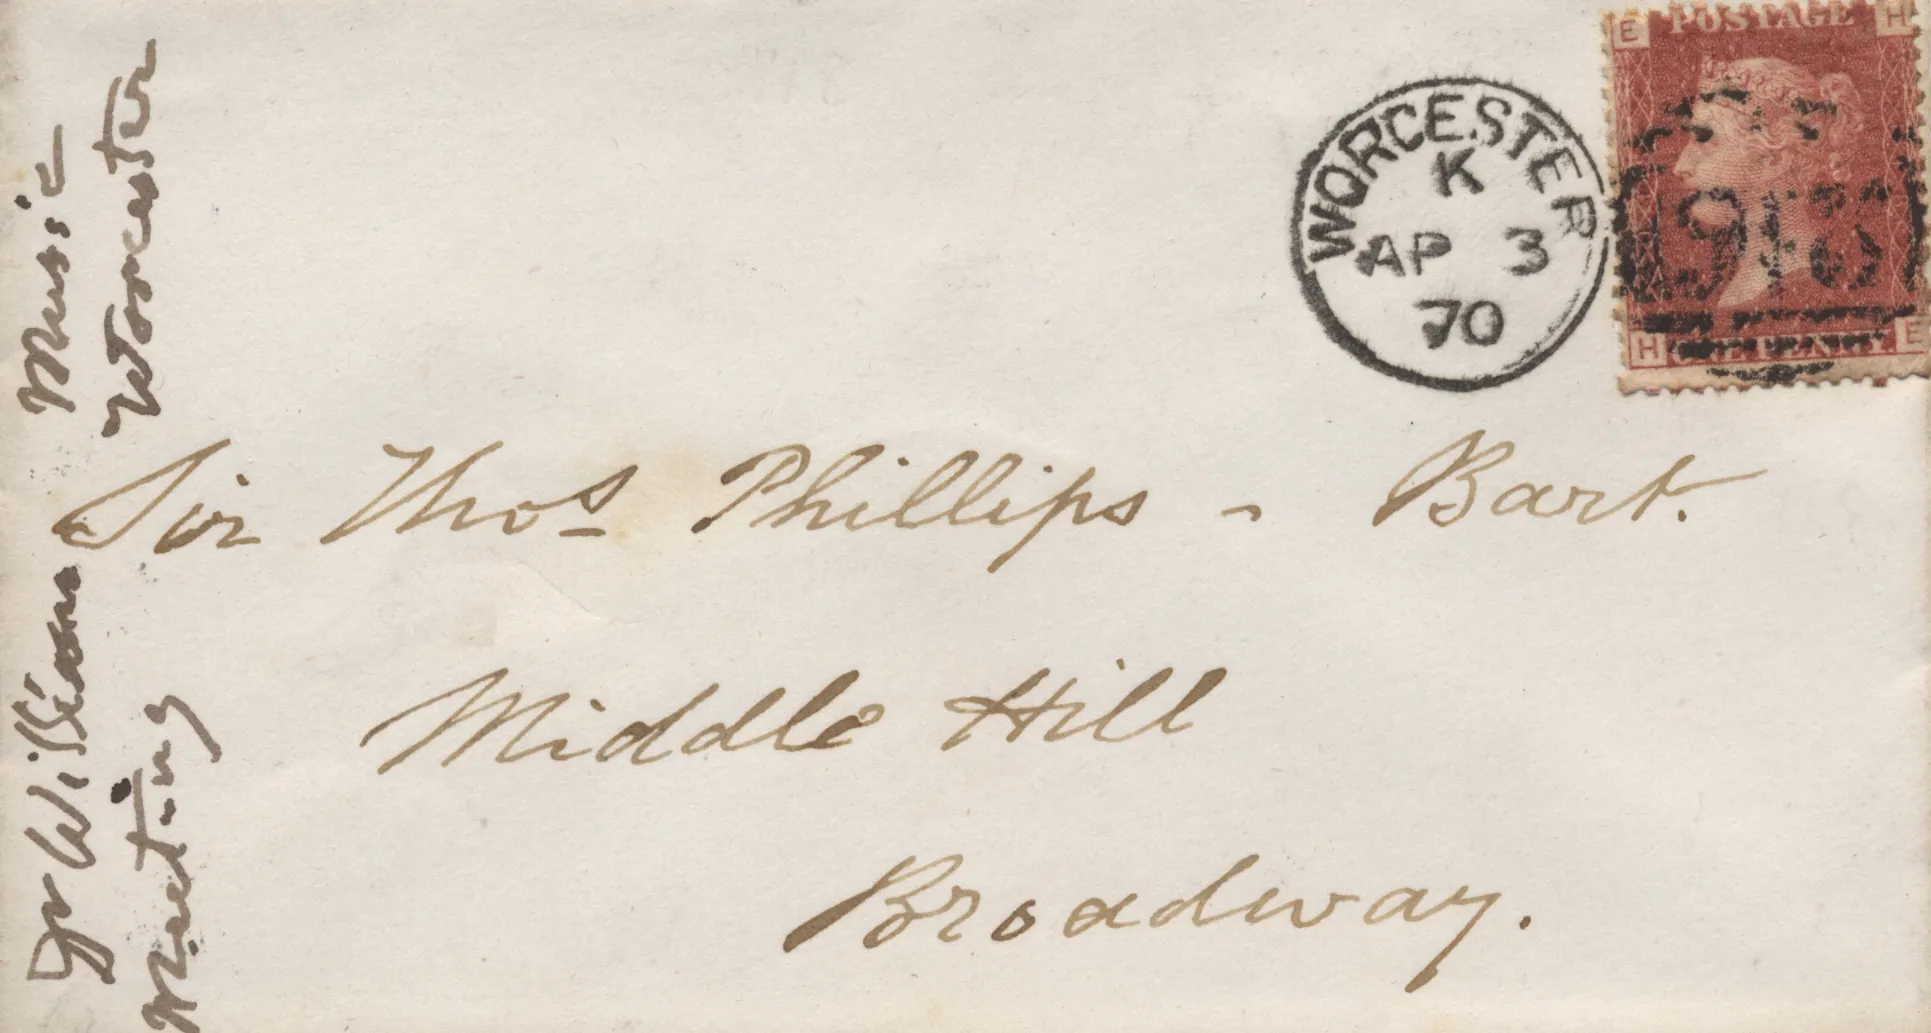 E POSTAGE H
WORCESTER
K
AP 3
70
H ONE PENNY E
Sir Thos Phillips - Bart.
Middle Hill
Broadway.
Dr William Music
Meeting Worcester